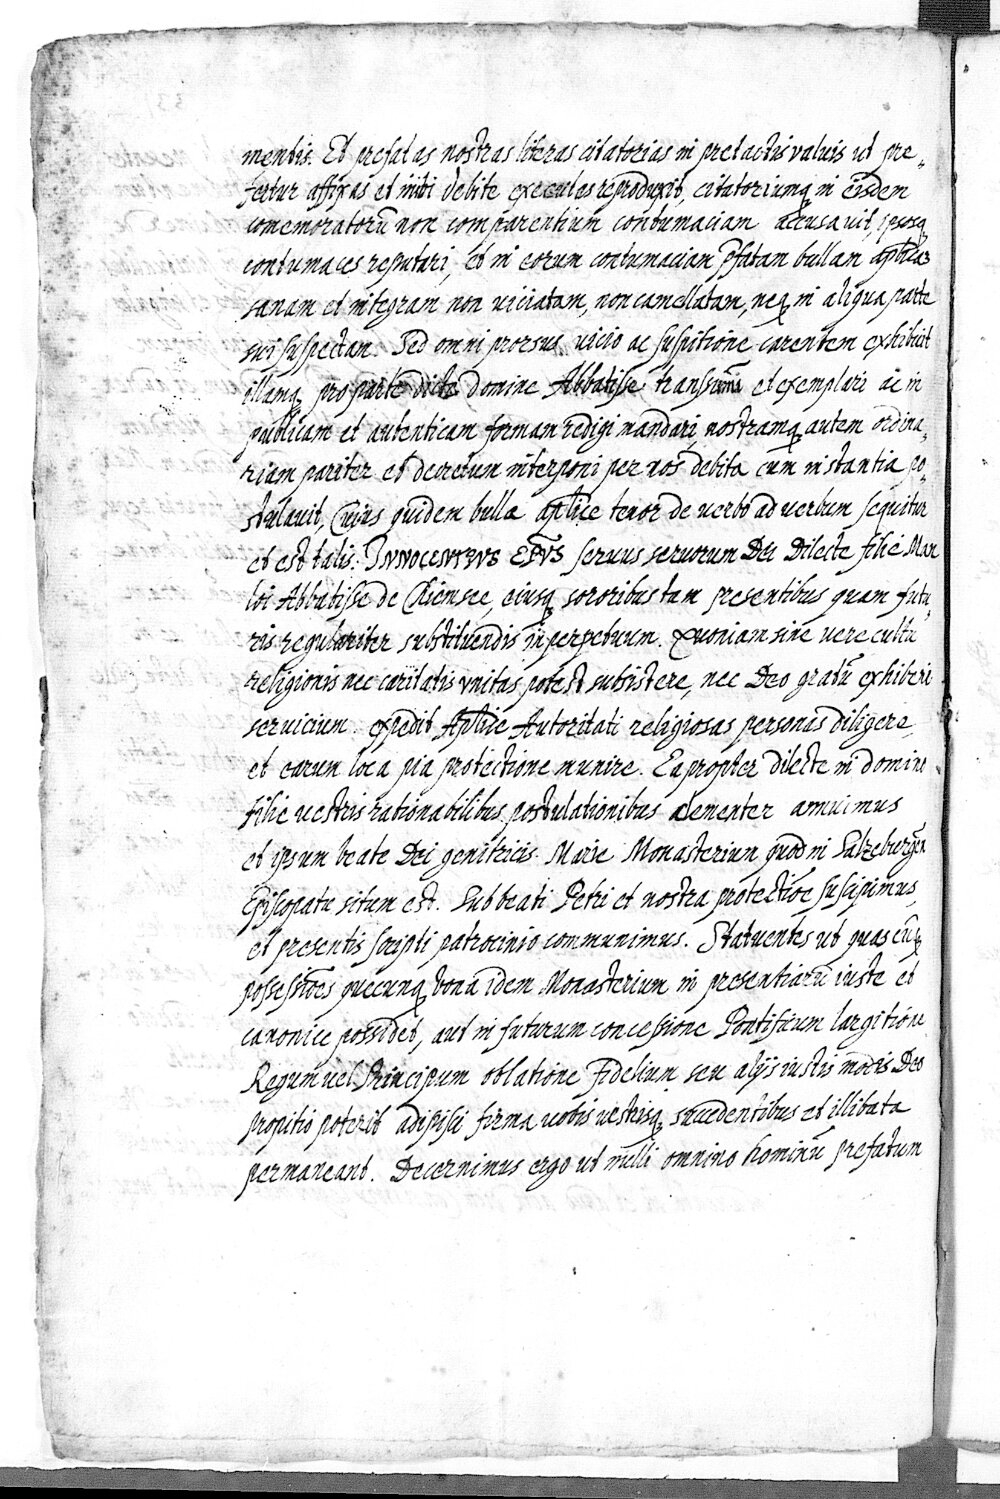 mentis. Et prefatas nostras literas citatorias in pretactis valuis ut pre„
fertur affixas et inibi debite executas reproduxit, citatoriumq̨ in eisdem
comemoratorũ non comparentium contumaciam accusauit, ipsosq̨
contumaces reputari, et in eorum contumaciam p̃fatam bullam aplicã
sanam et integram non uiciatam, non cancellatam, neq̨ in aliqua parte
sui suspectam. Sed omni prorsus uicio ac suspitione carentem exhibuit
illamq̨ pro parte dicte domine Abbatisse transsumi et exemplari ac in
publicam et autenticam formam redigi mandari, nostramq̨ autem ordina„
riam pariter et decretum interponi per nos debita cum instantia po„
stulauit, Cuius quidem bulle aplice tenor de uerbo ad uerbum sequitur
et est talis. INNOCENTIVS EPVS seruus seruorum Dei Dilecte filie Mar
loi Abbatisse de Chiemsee, eiusq̨ sororibus tam presentibus quam futu„
ris regulariter substituendis in perpetuum. Quoniam sine uere cultu
religionis nec caritatis vnitas potest subsistere, nec Deo gratũ exhiberi
seruicium. expedit Aplice Autoritati religiosas personas diligere,
et earum loca pia protectione munire. Eapropter dilecte in domino
filie uestris rationabilibus postulationibus clementer annuimus
et ipsum beate Dei genitricis Marie Monasterium quod in Salzeburgen̄
Episcopatu situm est. Sub beati Petri et nostra protectiōe suscipimus,
et presentis scripti patrocinio communimus. Statuentes ut quascũq̨
possessiōes quecunq̨ bona idem Monasterium in presentiarũ iuste et
canonice possidet, aut in futurum concessione Pontificum largitione
Regum uel Principum oblatione Fidelium seu alijs iustis modis Deo
propitio poterit adipisci firma uobis uestrisq̨ succedentibus et illibata
permaneant. Decernimus ergo ut nulli omnino hominũ prefatum